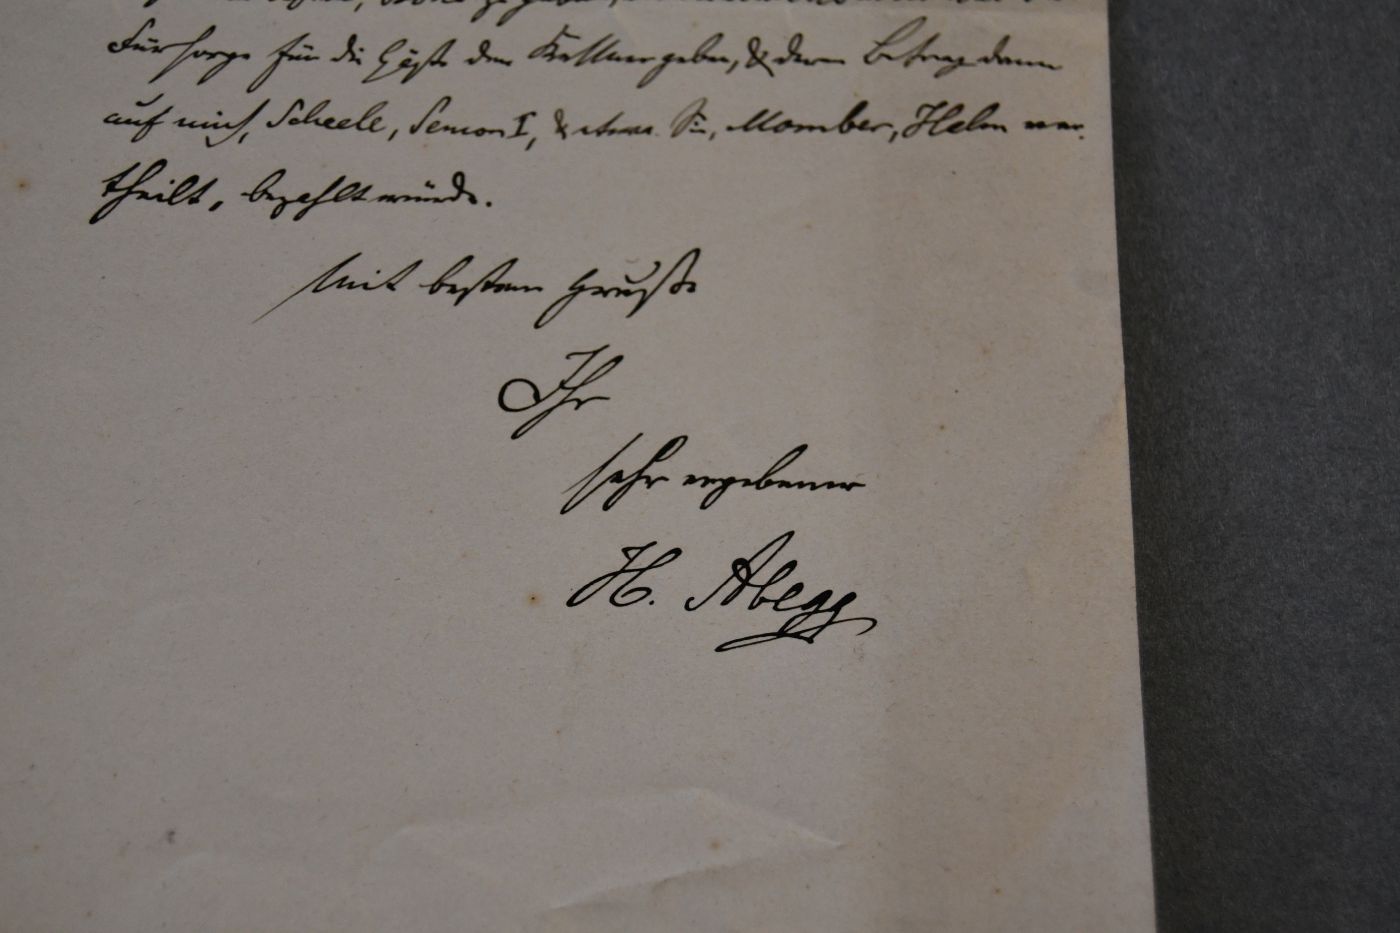 Fürsorge für die Gäste dem Kellner geben, & deren Betrag dann
auf mich, Scheele, Semon I, & etwa Sie, Momber, Helm ver-
theilt, bezahlt würde.
Mit bestem Gruße
Ihr
sehr ergebener
H. Abegg